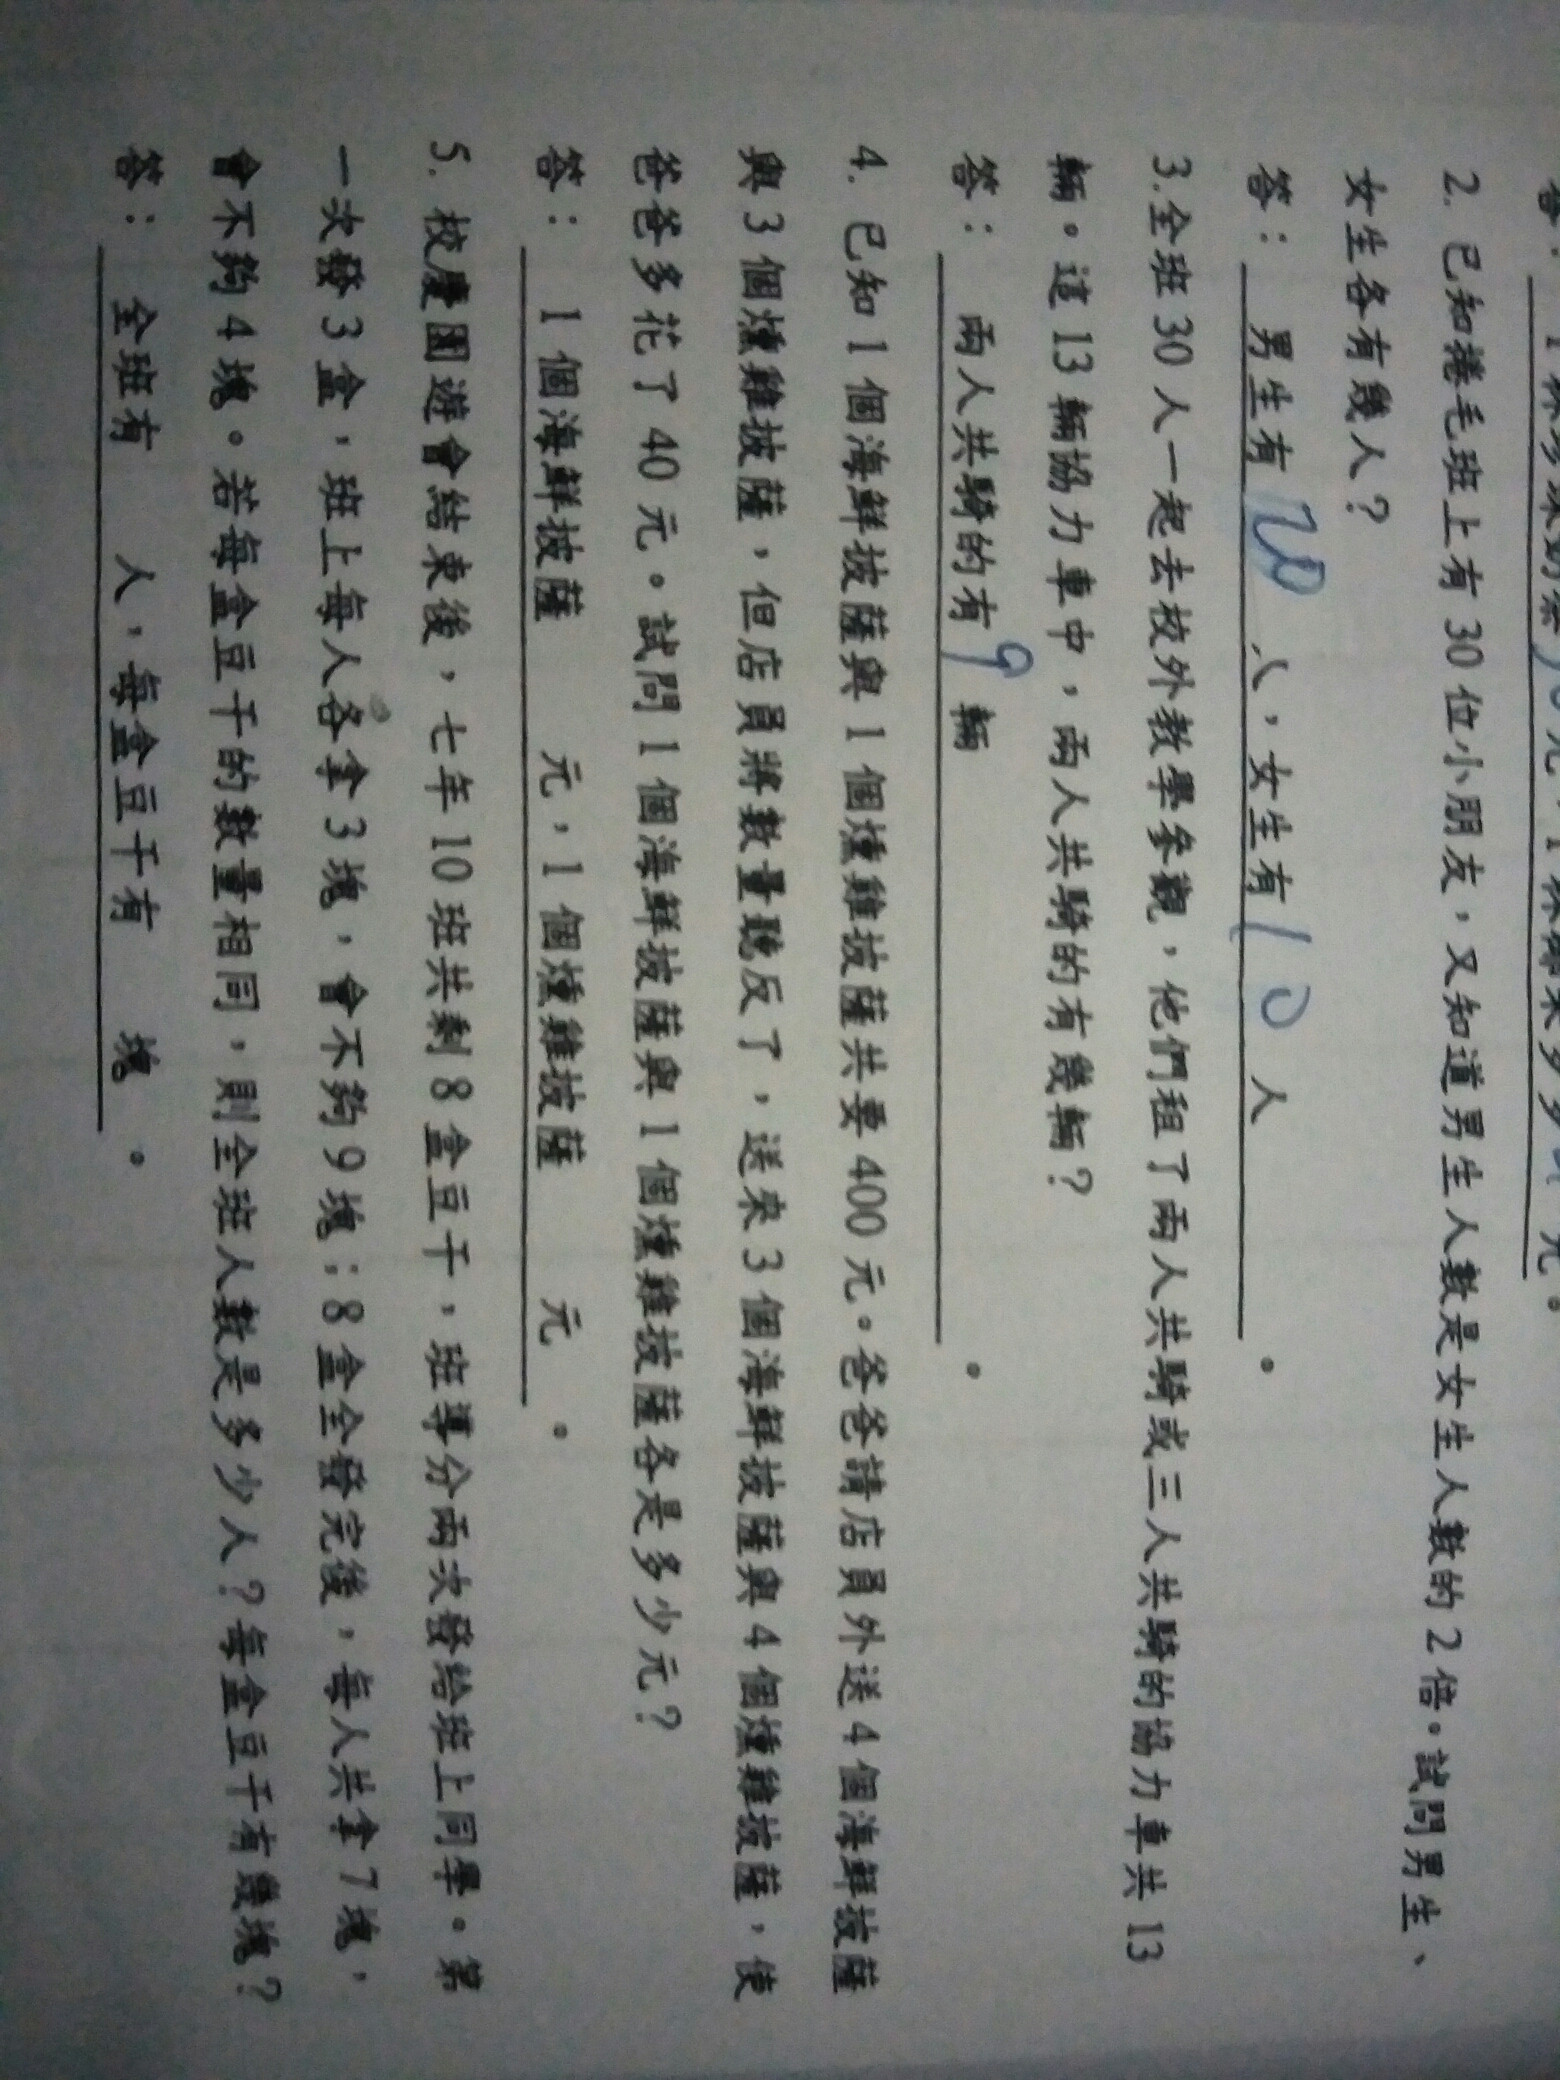 2. 已知捲毛班上有 30 位小朋友，又知道男生人數是女生人數的 2 倍。試問男生、
女生各有幾人？
答： 男生有 20 人，女生有 10 人 。
3.全班 30 人一起去校外教學參觀，他們租了兩人共騎或三人共騎的協力車共 13
輛。這 13 輛協力車中，兩人共騎的有幾輛？
答： 兩人共騎的有 9 輛 。
4. 已知 1 個海鮮披薩與 1 個燻雞披薩共要 400 元。爸爸請店員外送 4 個海鮮披薩
與 3 個燻雞披薩，但店員將數量聽反了，送來 3 個海鮮披薩與 4 個燻雞披薩，使
爸爸多花了 40 元。試問 1 個海鮮披薩與 1 個燻雞披薩各是多少元？
答： 1 個海鮮披薩 元，1 個燻雞披薩 元 。
5. 校慶園遊會結束後，七年 10 班共剩 8 盒豆干，班導分兩次發給班上同學。第
一次發 3 盒，班上每人各拿 3 塊，會不夠 9 塊；8 盒全發完後，每人共拿 7 塊，
會不夠 4 塊。若每盒豆干的數量相同，則全班人數是多少人？每盒豆干有幾塊？
答： 全班有 人，每盒豆干有 塊 。